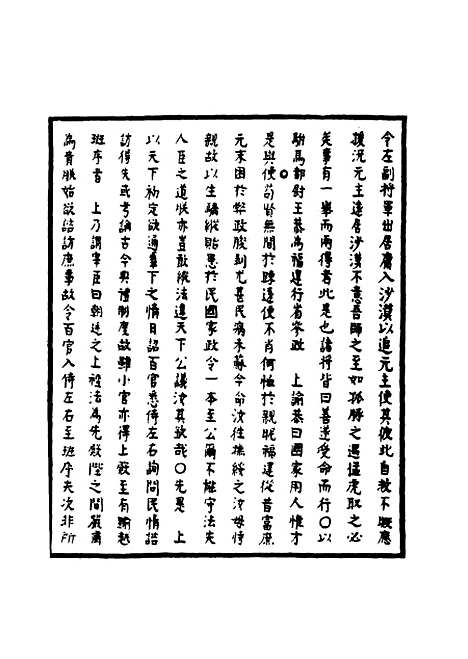 令左副將軍出居庸入沙漠以追元主使其彼此自救不暇應
援況元主遠居沙漠不意吾師之至如孤豚之遇猛虎取之必
矣事有一舉而兩得者此是也諸將皆曰善遂受命而行○以
駙馬都尉王恭爲福建行省參政　上諭恭曰國家用人惟才
是與使苟賢無間於疎遠使不肖何恤於親昵福建從昔富庶
元末困於弊政朘剝尤甚民病未蘇今命汝往撫綏之汝毋恃
親故以生驕縱貽患於民國家政令一本至公爾不能守法失
人臣之道朕亦豈敢縱法違天下公議汝其欽哉○先是　上
以天下初定欲通羣下之情日詔百官悉侍左右詢問民情諮
訪得失或考論古今典禮制度故雖小官亦得上殿至有踰越
班序者　上乃謂宰臣曰朝廷之上禮法爲先殿陛之間嚴肅
爲貴朕始欲諮訪庶事故令百官入侍左右至班序失次非所